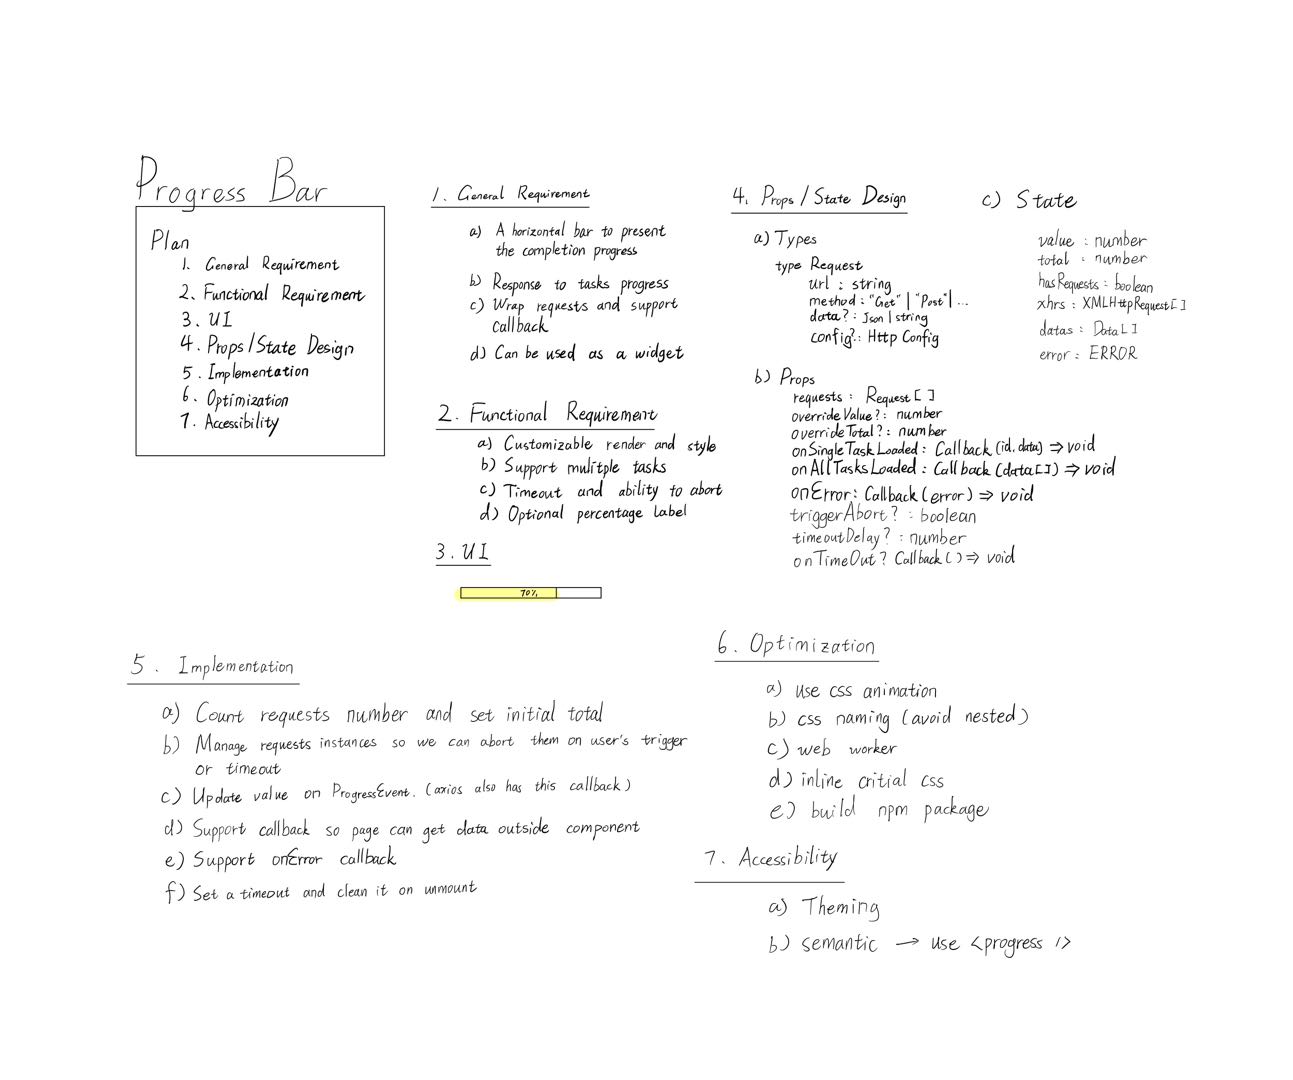 Progress Bar
Plan
1. General Requirement
2. Functional Requirement
3. UI
4. Props/State Design
5. Implementation
6. Optimization
7. Accessibility
1. General Requirement
a) A horizontal bar to present
the completion progress
b) Response to tasks progress
c) Wrap requests and support
callback
d) Can be used as a widget
2. Functional Requirement
a) Customizable render and style
b) Support mulitple tasks
c) Timeout and ability to abort
d) Optional percentage label
3. UI
70%
4. Props/State Design
a) Types
type Request
url : string
method : "Get" | "Post" | ...
data? : Json | string
config? : Http Config
b) Props
requests : Request[]
overrideValue? : number
overrideTotal? : number
onSingleTaskLoaded : Callback(id, data) => void
onAllTasksLoaded : Callback(data[]) => void
onError : Callback(error) => void
triggerAbort? : boolean
timeoutDelay? : number
onTimeOut? Callback() => void
c) State
value : number
total : number
hasRequests : boolean
xhrs : XMLHttpRequest[]
datas : Data[]
error : ERROR
5. Implementation
a) Count requests number and set initial total
b) Manage requests instances so we can abort them on user's trigger
or timeout
c) Update value on ProgressEvent. (axios also has this callback)
d) Support callback so page can get data outside component
e) Support onError callback
f) Set a timeout and clean it on unmount
6. Optimization
a) use css animation
b) css naming (avoid nested)
c) web worker
d) inline critial css
e) build npm package
7. Accessibility
a) Theming
b) semantic → use <progress />